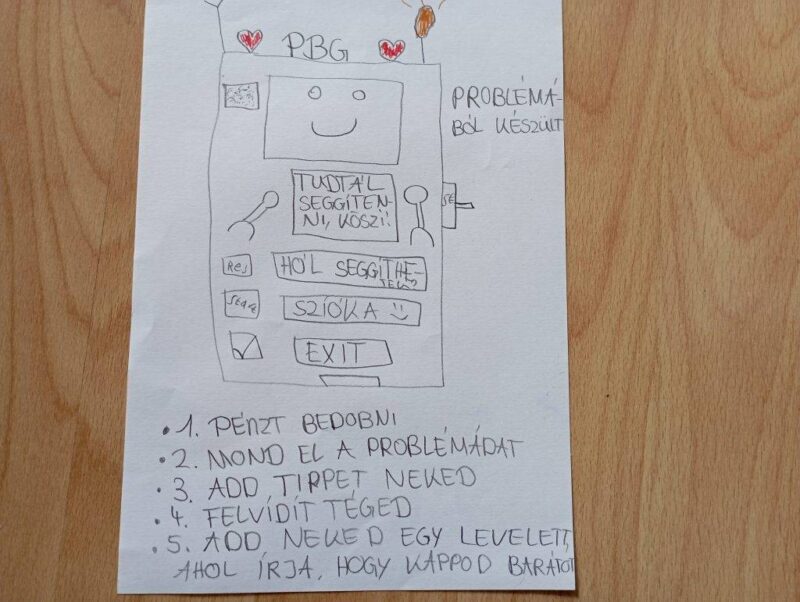 PBG
PROBLÉMÁ-
BÓL KÉSZÜLT
TUDTÁL
SEGGÍTEN-
NI, KÖSZI!
RES
HÓL SEGGÍTHE-
SZIÓKA
EXIT
• 1. PÉNZT BEDOBNI
• 2. MOND EL A PROBLÉMÁDAT
• 3. ADD TIPPET NEKED
• 4. FELVÍDÍT TÉGED
• 5. ADD NEKED EGY LEVELETT,
AHOL ÍRJA, HOGY KAPPOD BARÁTOT